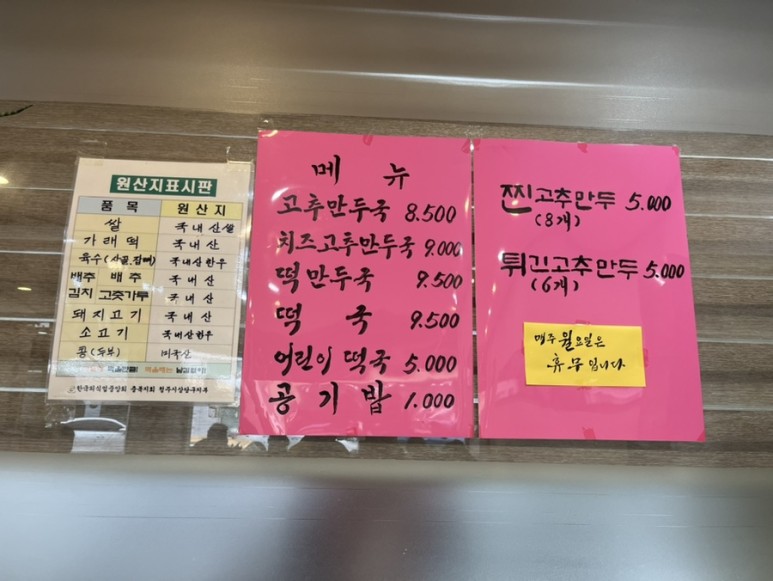 원산지표시판
품 목 원 산 지
쌀 국내산쌀
가래떡 국내산
육수(사골,잡뼈) 국내산한우
배추 배추 국내산
김치 고춧가루 국내산
돼지고기 국내산
소고기 국내산한우
콩(두부) 미국산
한국외식업중앙회 충북지회 청주시상당구지부
메 뉴
고추만두국 8.500
치즈고추만두국 9.000
떡만두국 9.500
떡 국 9.500
어린이 떡국 5.000
공기밥 1.000
찐고추만두 5.000
(8개)
튀긴고추만두 5.000
(6개)
매주 월요일은
휴무입니다